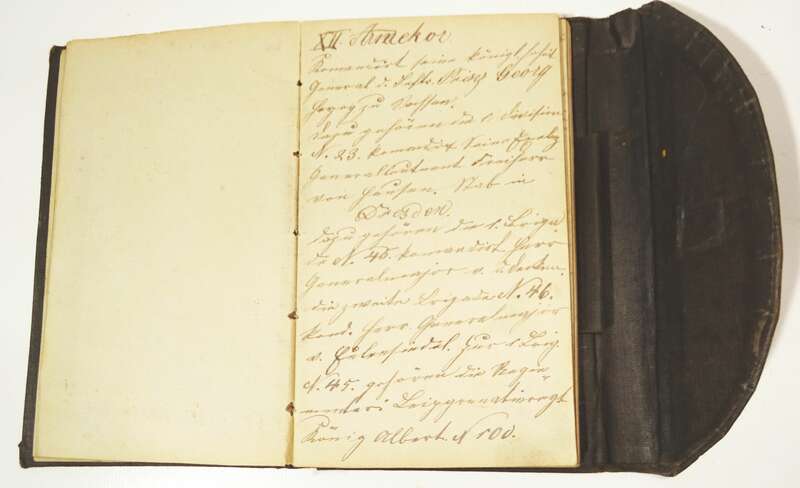 XII. Armekor.
Komandirt seine Königl. Hoheit
General d. Inftr. Prinz Georg
Herzog zu Sachsen.
Dazu gehören die 1. Division
N. 23. komandirt Seine Exzelz
Generalleutnant Freiherr
von Hausen. Stab in
Dresden.
dazu gehören die 1. Briga
de N. 45. komandirt. Herr
Generalmajor v.
die zweite Brigade N. 46.
komd. Herr Generalmajor
v. Zur 1. Brig.
N. 45. gehören die Regi=
menter: Leipgrenatirregt
König Albert. N 100.